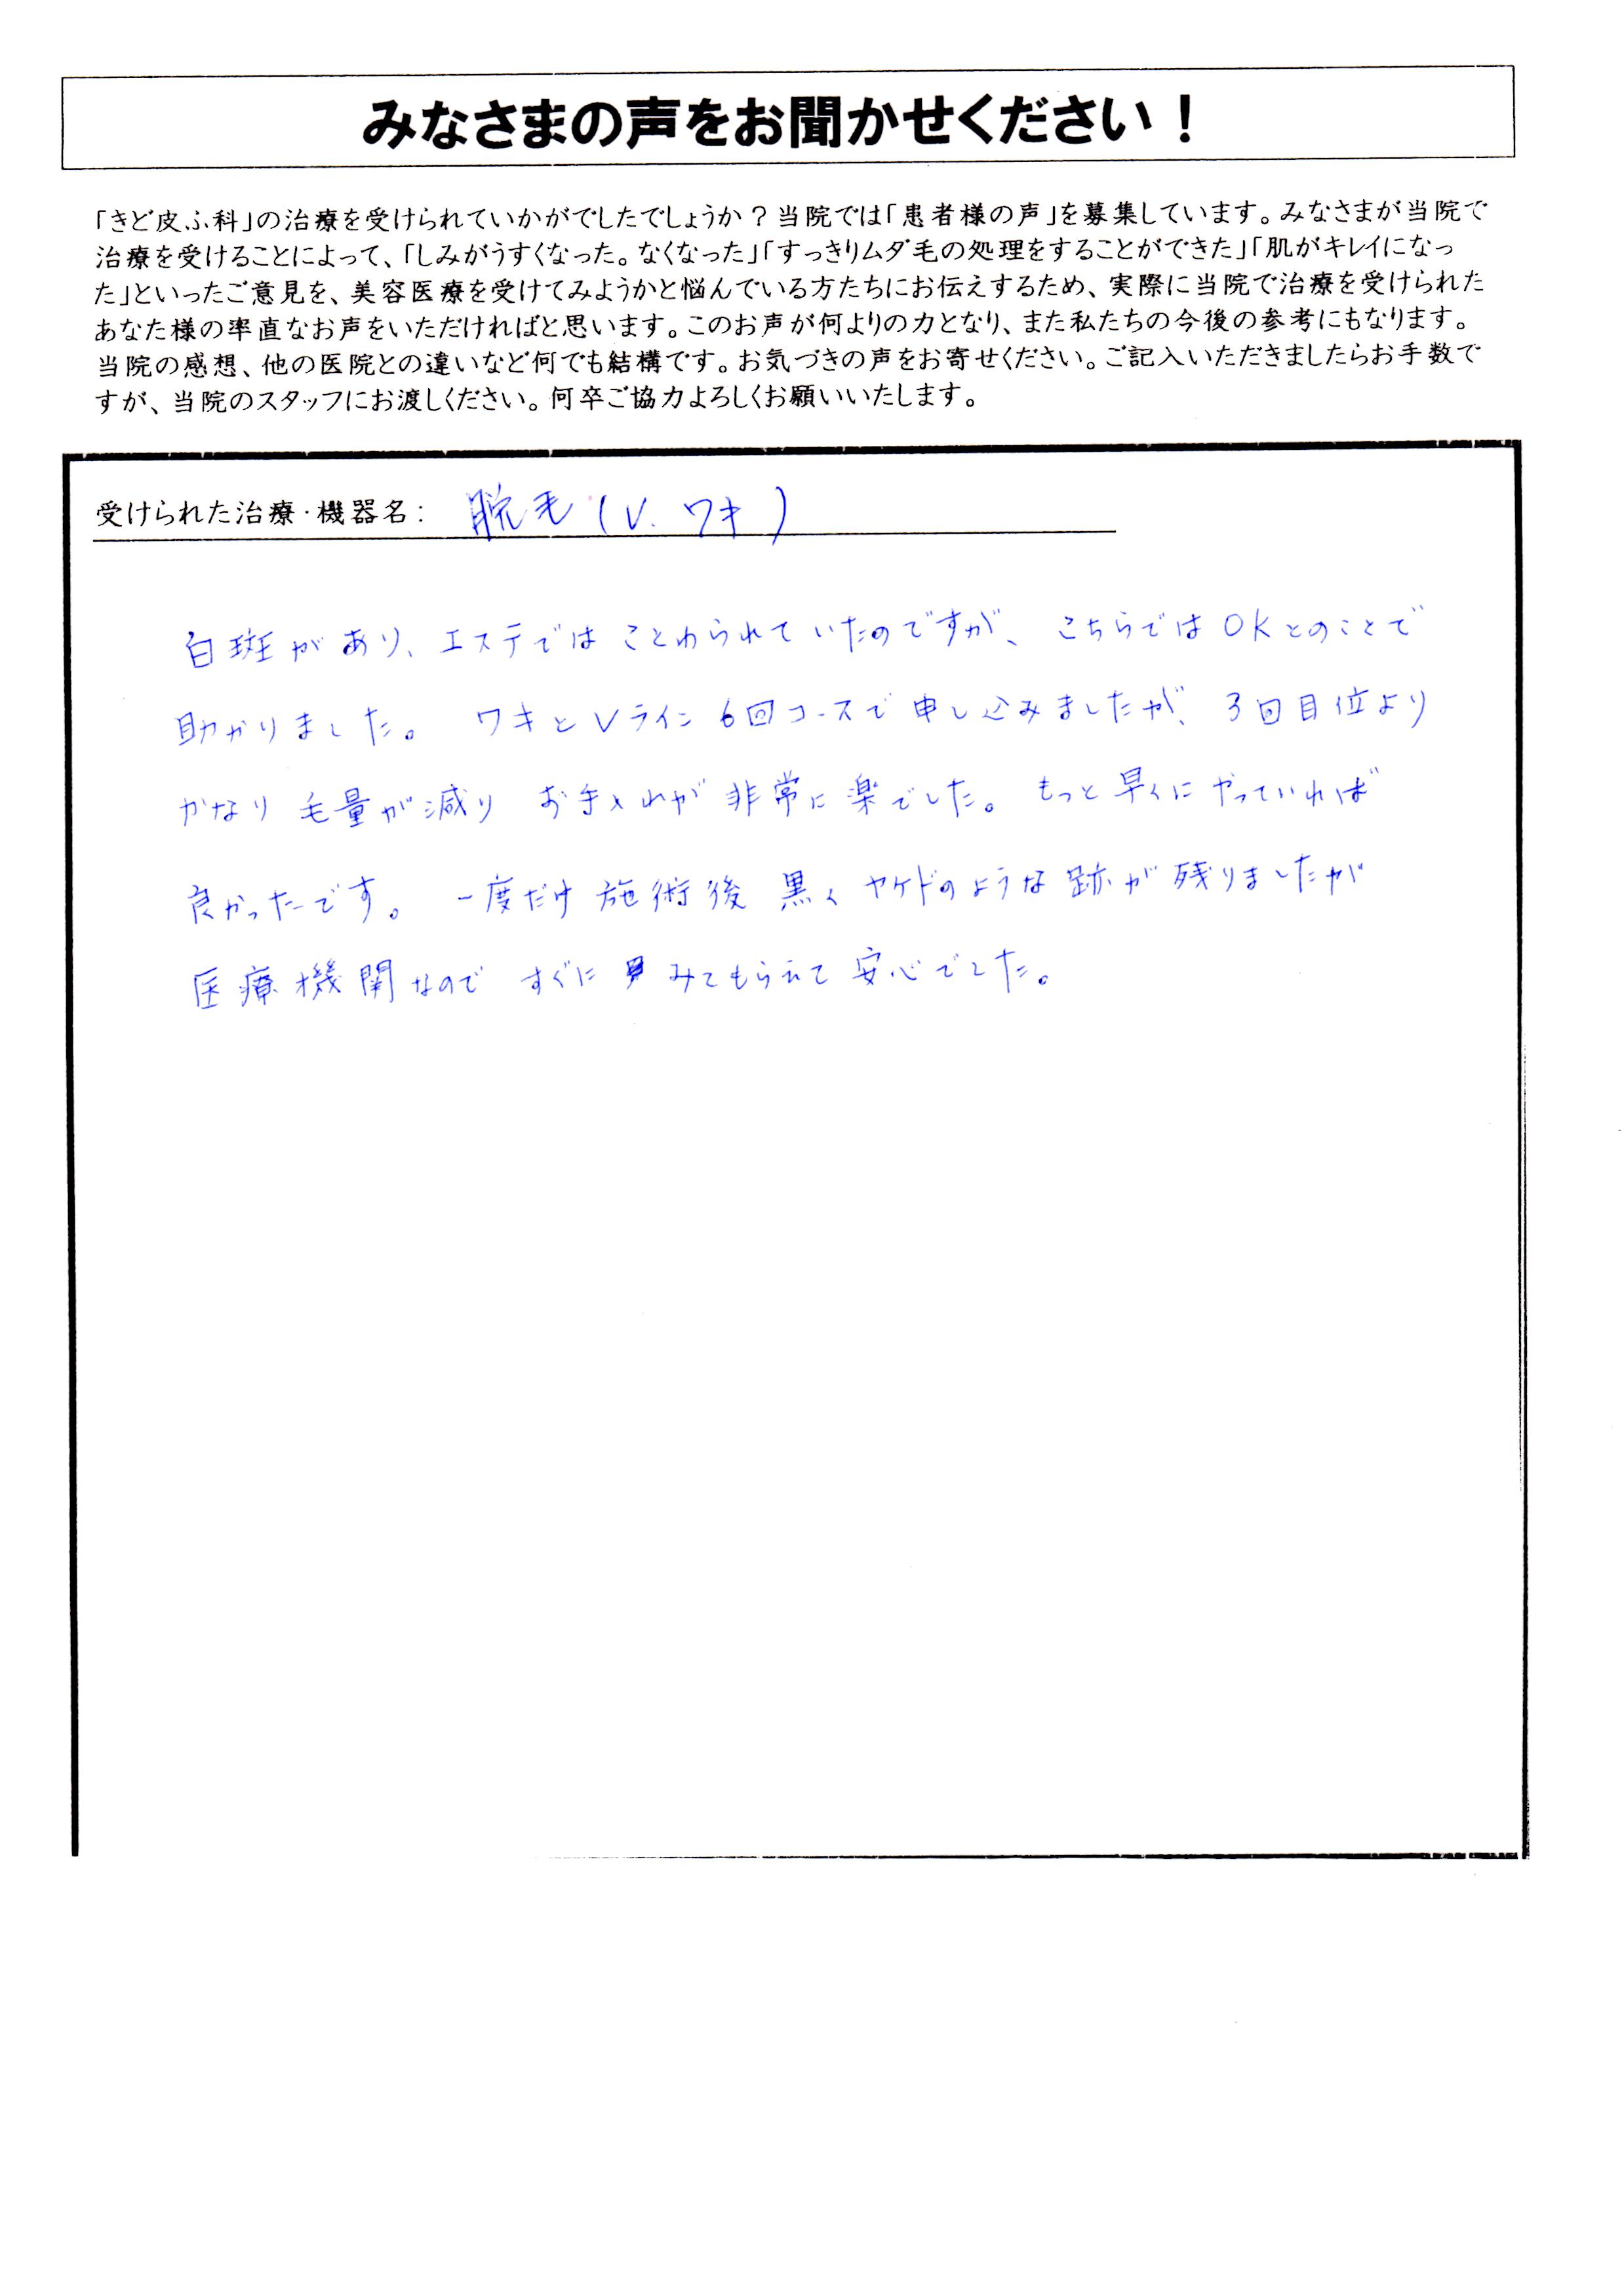 みなさまの声をお聞かせください！
「きど皮ふ科」の治療を受けられていかがでしたでしょうか？当院では「患者様の声」を募集しています。みなさまが当院で
治療を受けることによって、「しみがうすくなった。なくなった」「すっきりムダ毛の処理をすることができた」「肌がキレイになっ
た」といったご意見を、美容医療を受けてみようかと悩んでいる方たちにお伝えするため、実際に当院で治療を受けられた
あなた様の率直なお声をいただければと思います。このお声が何よりの力となり、また私たちの今後の参考にもなります。
当院の感想、他の医院との違いなど何でも結構です。お気づきの声をお寄せください。ご記入いただきましたらお手数で
すが、当院のスタッフにお渡しください。何卒ご協力よろしくお願いいたします。
受けられた治療・機器名： 脱毛（V. ワキ）
白斑があり、エステではことわられていたのですが、こちらではOKとのことで
助かりました。 ワキとVライン6回コースで申し込みましたが、3回目位より
かなり毛量が減り お手入れが非常に楽でした。もっと早くにやっていれば
良かったです。 一度だけ施術後 黒くヤケドのような跡が残りましたが
医療機関なので すぐに みてもらえて安心でした。